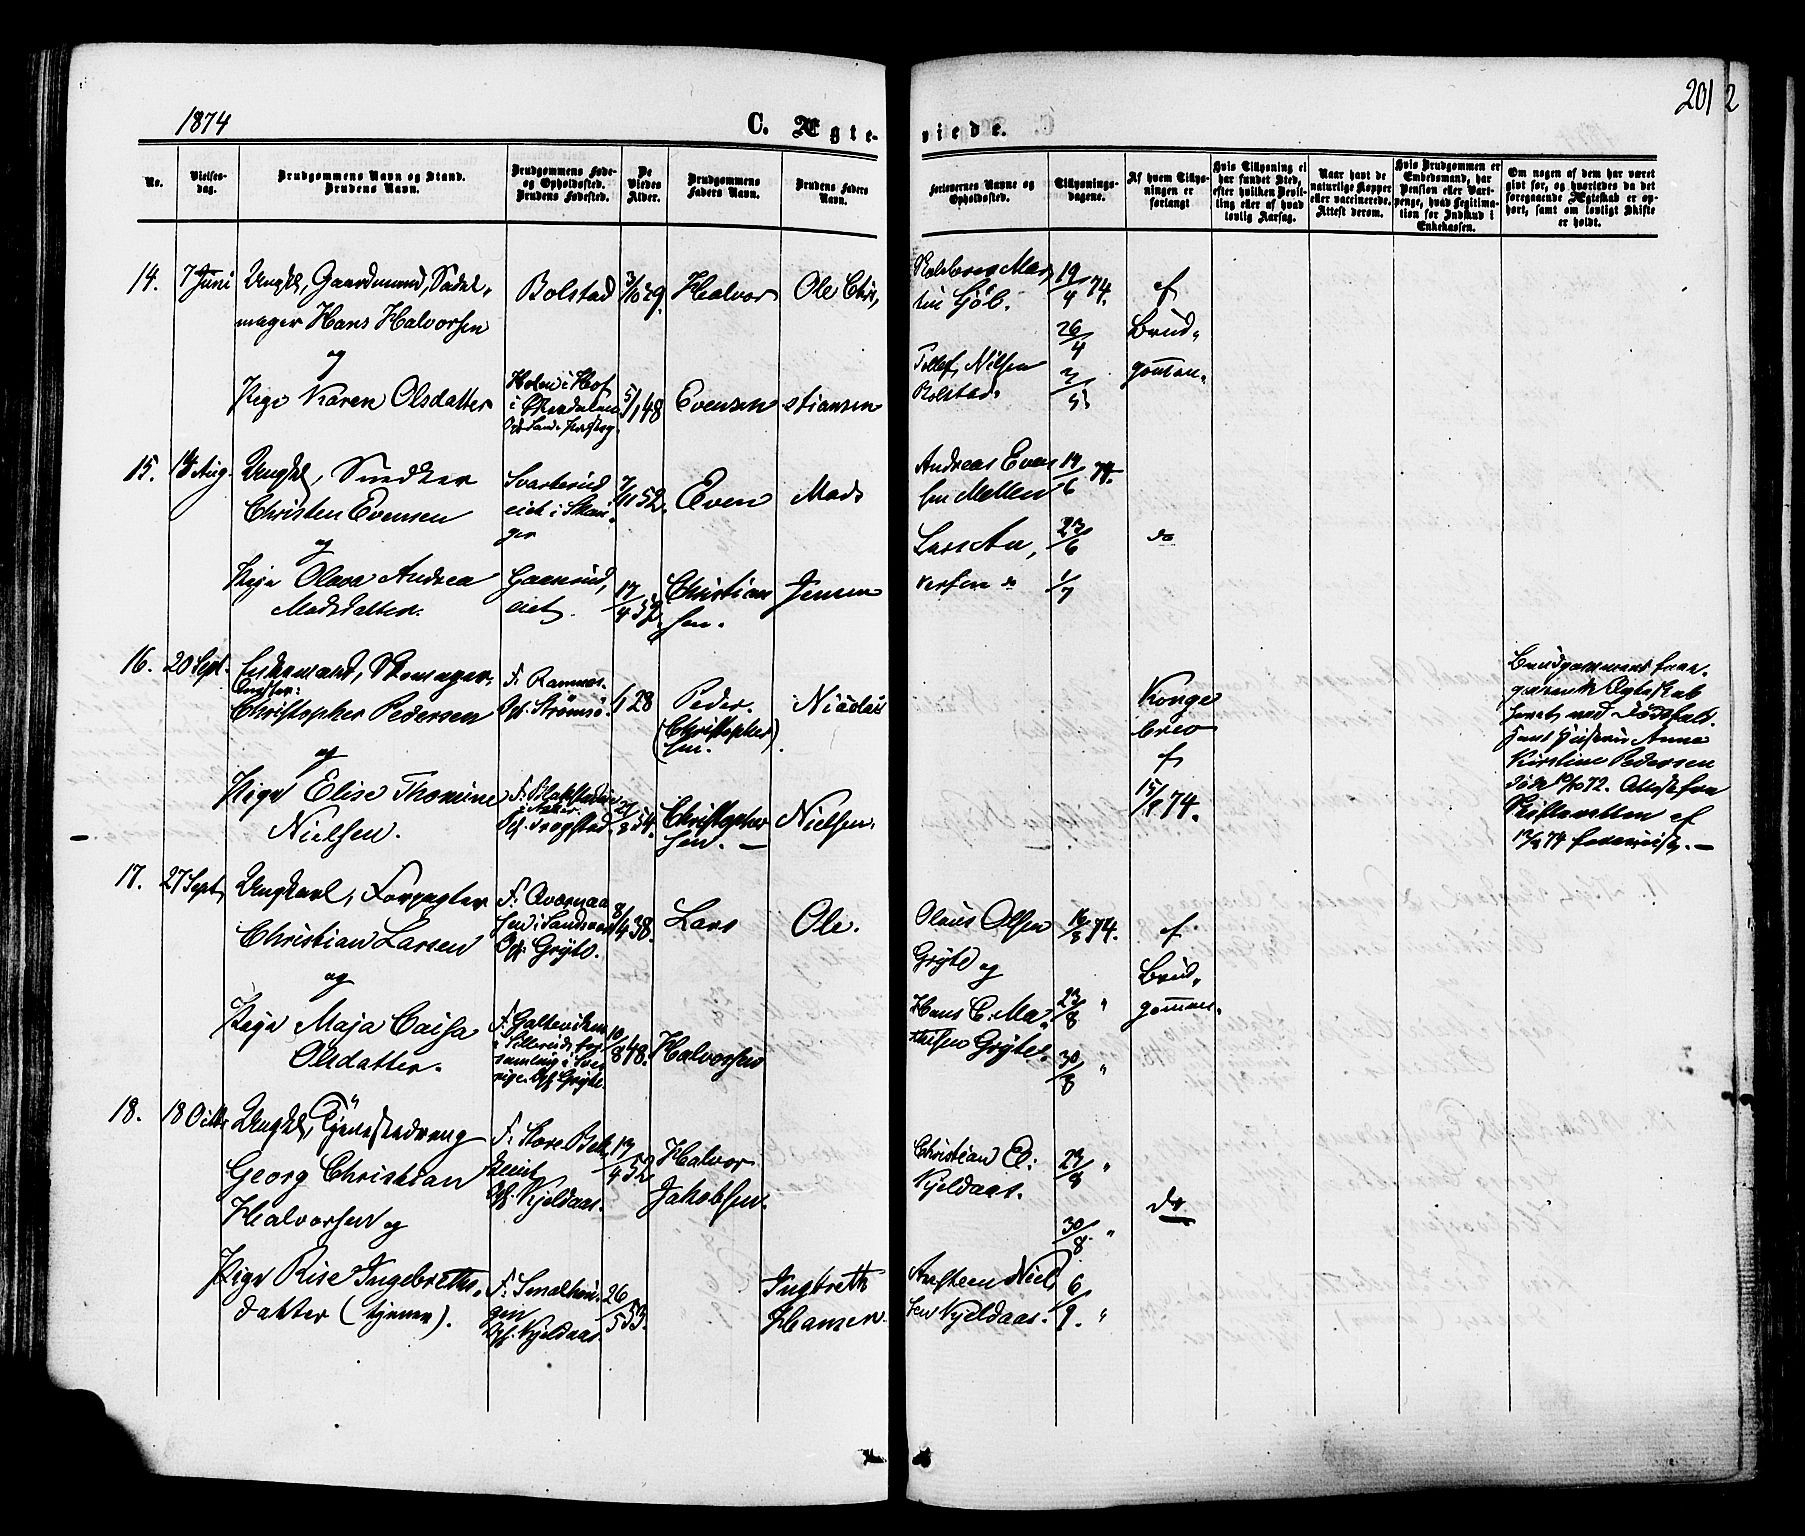 1874
C. Ægte-
viede.
201
2
No.
Vielses-
dag.
Brudgommens Navn og Stand.
Brudens Navn.
Brudgommens Føde-
og Opholdssted.
Brudens Fødested.
De
Viedes
Alder.
Brudgommens
Faders Navn.
Brudens Faders
Navn.
Forlovernes Navne og
Opholdssted.
Tillysnings-
dagene.
Af hvem Tillys-
ningen er
forlangt
Hvis Tillysning ei
har fundet Sted,
efter hvilken Bevil-
ling eller af hvad
lovlig Aarsag.
Naar havt de
naturlige Kopper
eller vaccinerede.
Attest derom.
Hvis Brudgommen er
Embedsmand, har
Pension eller Vart-
penge, hvad Legitima-
tion for Indskud i
Enkekassen.
Om nogen af dem har været
givt før, og hvorledes da det
foregaaende Ægteskab er op-
hørt, samt om lovligt Skifte
er holdt.
14. 7 Juni Ungkl, Gaardmand, Sadel-
mager Hans Halvorsen
og
Pige Karen Olsdatter
Bolstad
Holm i Hof
3/10 49.
5/1 48
Halvor
Evensen
Ole Chri-
stiansen
Martin Sjöb.
Tollef Nilsen
Bolstad.
19/4 74.
26/4
3/5
af
Brud-
gommen.
15. 18 Aug. Ungkl, Snedker
Christen Evensen
og
Pige Olava Andrea
Madsdatter.
Svarterud
eiet i Skou-
ger
Gaaserud,
eiet.
7/11 52.
17/4 52.
Even
Christian
sen.
Mads
Jensen
Andreas Even
sen Mellem
Lars An,
versen do
14/6 74.
23/6
1/7
do
16. 20 Sept. Enkemand, Skomager-
mester:
Christopher Pedersen
og
Pige Elise Thomine
Nielsen.
F. Ramnes.
Oph. Strømsø.
Oph. Frogstad.
1/1 28
54.
Peder
(Christopher
sen.)
Christopher
sen. —
Nicolai
Nielsen.
Konge
brev
af
15/8 74.
Brudgommens fore-
gaaende Ægteskab
hævet ved Dødsfald.
Hans Hustru Anne
Kirstine Pedersen
døde 19/10 72. Attest fra
Skifteretten af
12/9 74 foreviist. —
17. 27 Sept, Ungkarl, Forpagter
Christian Larsen
og
Pige Maja Caisa
Olsdatter.
F. Qværnaa
sen i Sandsvær
Oph. Gryte.
F. Galterviken
i Sillerud for
samling i Sve
rige. Oph. Gryte.
8/4 38.
10/8 48.
Lars
Halvorsen
Ole.
Olaus Olsen
Gryte og
Hans C. Ma-
thisen Gryte.
16/8 74.
23/8 "
30/8 "
af
Brud-
gommen.
18. 18 Octbr Ungkl, Tjenestedreng
Georg Christian
Halvorsen og
Pige Rise Ingebreths-
datter (tjener).
F. Store Bek
keviet
Oph. Kjeldaas.
F. Smalhun-
gen
Oph. Kjeldaas.
17/4 52
26/5 53.
Halvor
Jakobsen.
Ingbreth
Hansen.
Christian E:
Kjeldaas.
Ansteen Niel
sen Kjeldaas.
23/8 "
30/8 "
6/9. "
do